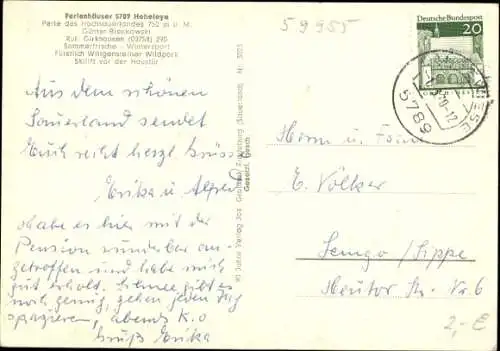 Ferienhäuser 5789 Hoheleye
Perle des Hochsauerlandes 752 m ü. M.
Günter Brackowski
Ruf: Girkhausen (02758) 290
Sommerfrische - Wintersport
Fürstlich Wittgensteiner Wildpark
Skilift vor der Haustür
Aus dem schönen
Sauerland sendet
Euch recht herzl. Grüsse
Erika u Alfred
habe es hier mit der
Pension wunderbar an-
getroffen und habe mich
gut erhold. Schnee gibt es
noch genug, gehen jeden Tag
spazieren, abends K.O
Gruß Erika
Gesetzl. Gesch.
59955
DEUTSCHE BUNDESPOST
20
5789
Herrn u. Frau
E. Völker
Lemgo/Lippe
Str. Nr 6
2,- €